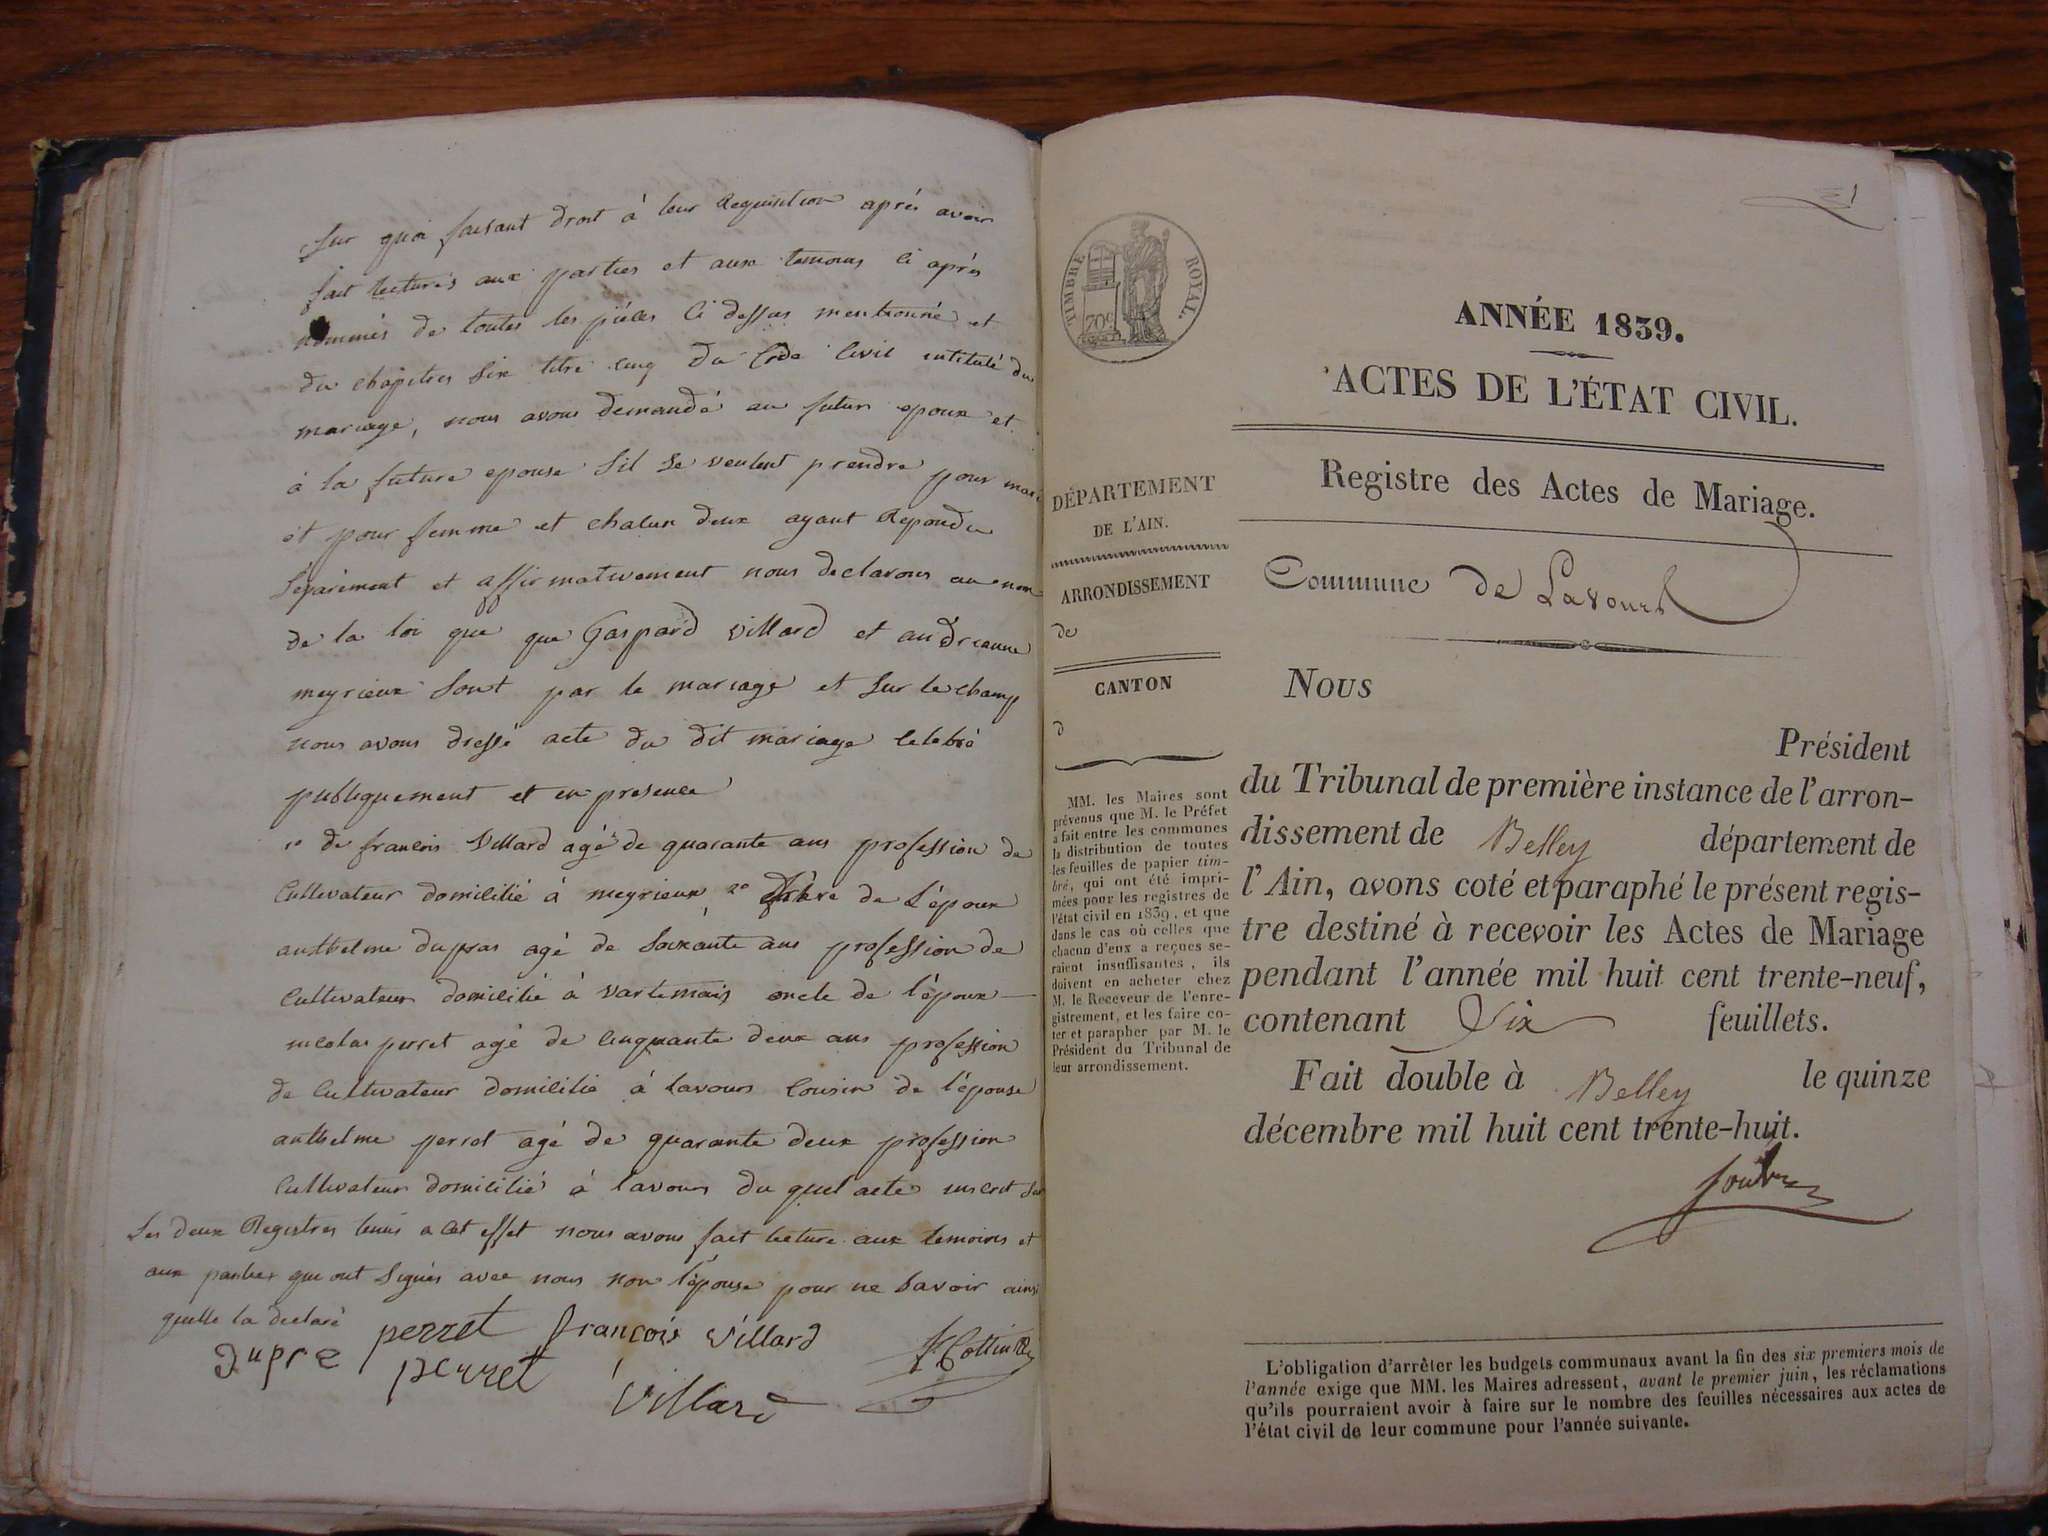 Sur quoi faisant droit à leur Requisition après avoir
fait lectures aux parties et aux temoins ci après
nommés de toutes les pièces ci dessus mentionné et
du chapitres six titre cinq du Code Civil intitulé du
mariage, nous avons demandé au futur epoux et
à la future epouse s'il se veulent prendre pour mari
et pour femme et chacun deux ayant Repondu
Séparément et affirmativement nous declarons au nom
de la loi que que Gaspard Villard et andreanne
meyrieux sont par le mariage et sur le champ
nous avons dressé acte du dit mariage celebré
publiquement et en presence
1º de francois Villard agé de quarante ans profession de
Cultivateur domicilié à meyrieux, 2º frère de L'époux
anthelme dupras agé de soixante ans profession de
Cultivateur domicilié à Vartemais oncle de l'époux
nicolas perret agé de cinquante deux ans profession
de Cultivateur domicilié à Lavours Cousin de l'épouse
anthelme perret agé de quarante deux profession
Cultivateur domicilié à lavours du quel acte inscrit sur
Les deux Registres tenus a cet effet nous avons fait lecture aux temoins et
aux parties qui ont Signés avec nous non l'épouse pour ne Savoir ainsi
quelle la declaré
perret françois Villard
dupra perret Villard
Collin
1
TIMBRE ROYAL.
70c
ANNÉE 1839.
ACTES DE L'ÉTAT CIVIL.
Registre des Actes de Mariage.
Commune de Lavours
DÉPARTEMENT
DE L'AIN.
ARRONDISSEMENT
de
CANTON
d
MM. les Maires sont
prévenus que M. le Préfet
a fait entre les communes
la distribution de toutes
les feuilles de papier tim-
bré, qui ont été impri-
mées pour les registres de
l'état civil en 1839, et que
dans le cas où celles que
chacun d'eux a reçues se-
raient insuffisantes, ils
doivent en acheter chez
M. le Receveur de l'enre-
gistrement, et les faire co-
ter et parapher par M. le
Président du Tribunal de
leur arrondissement.
Nous
Président
du Tribunal de première instance de l'arron-
dissement de Belley département de
l'Ain, avons coté et paraphé le présent regis-
tre destiné à recevoir les Actes de Mariage
pendant l'année mil huit cent trente-neuf,
contenant Six feuillets.
Fait double à Belley le quinze
décembre mil huit cent trente-huit.
L'obligation d'arrêter les budgets communaux avant la fin des six premiers mois de
l'année exige que MM. les Maires adressent, avant le premier juin, les réclamations
qu'ils pourraient avoir à faire sur le nombre des feuilles nécessaires aux actes de
l'état civil de leur commune pour l'année suivante.